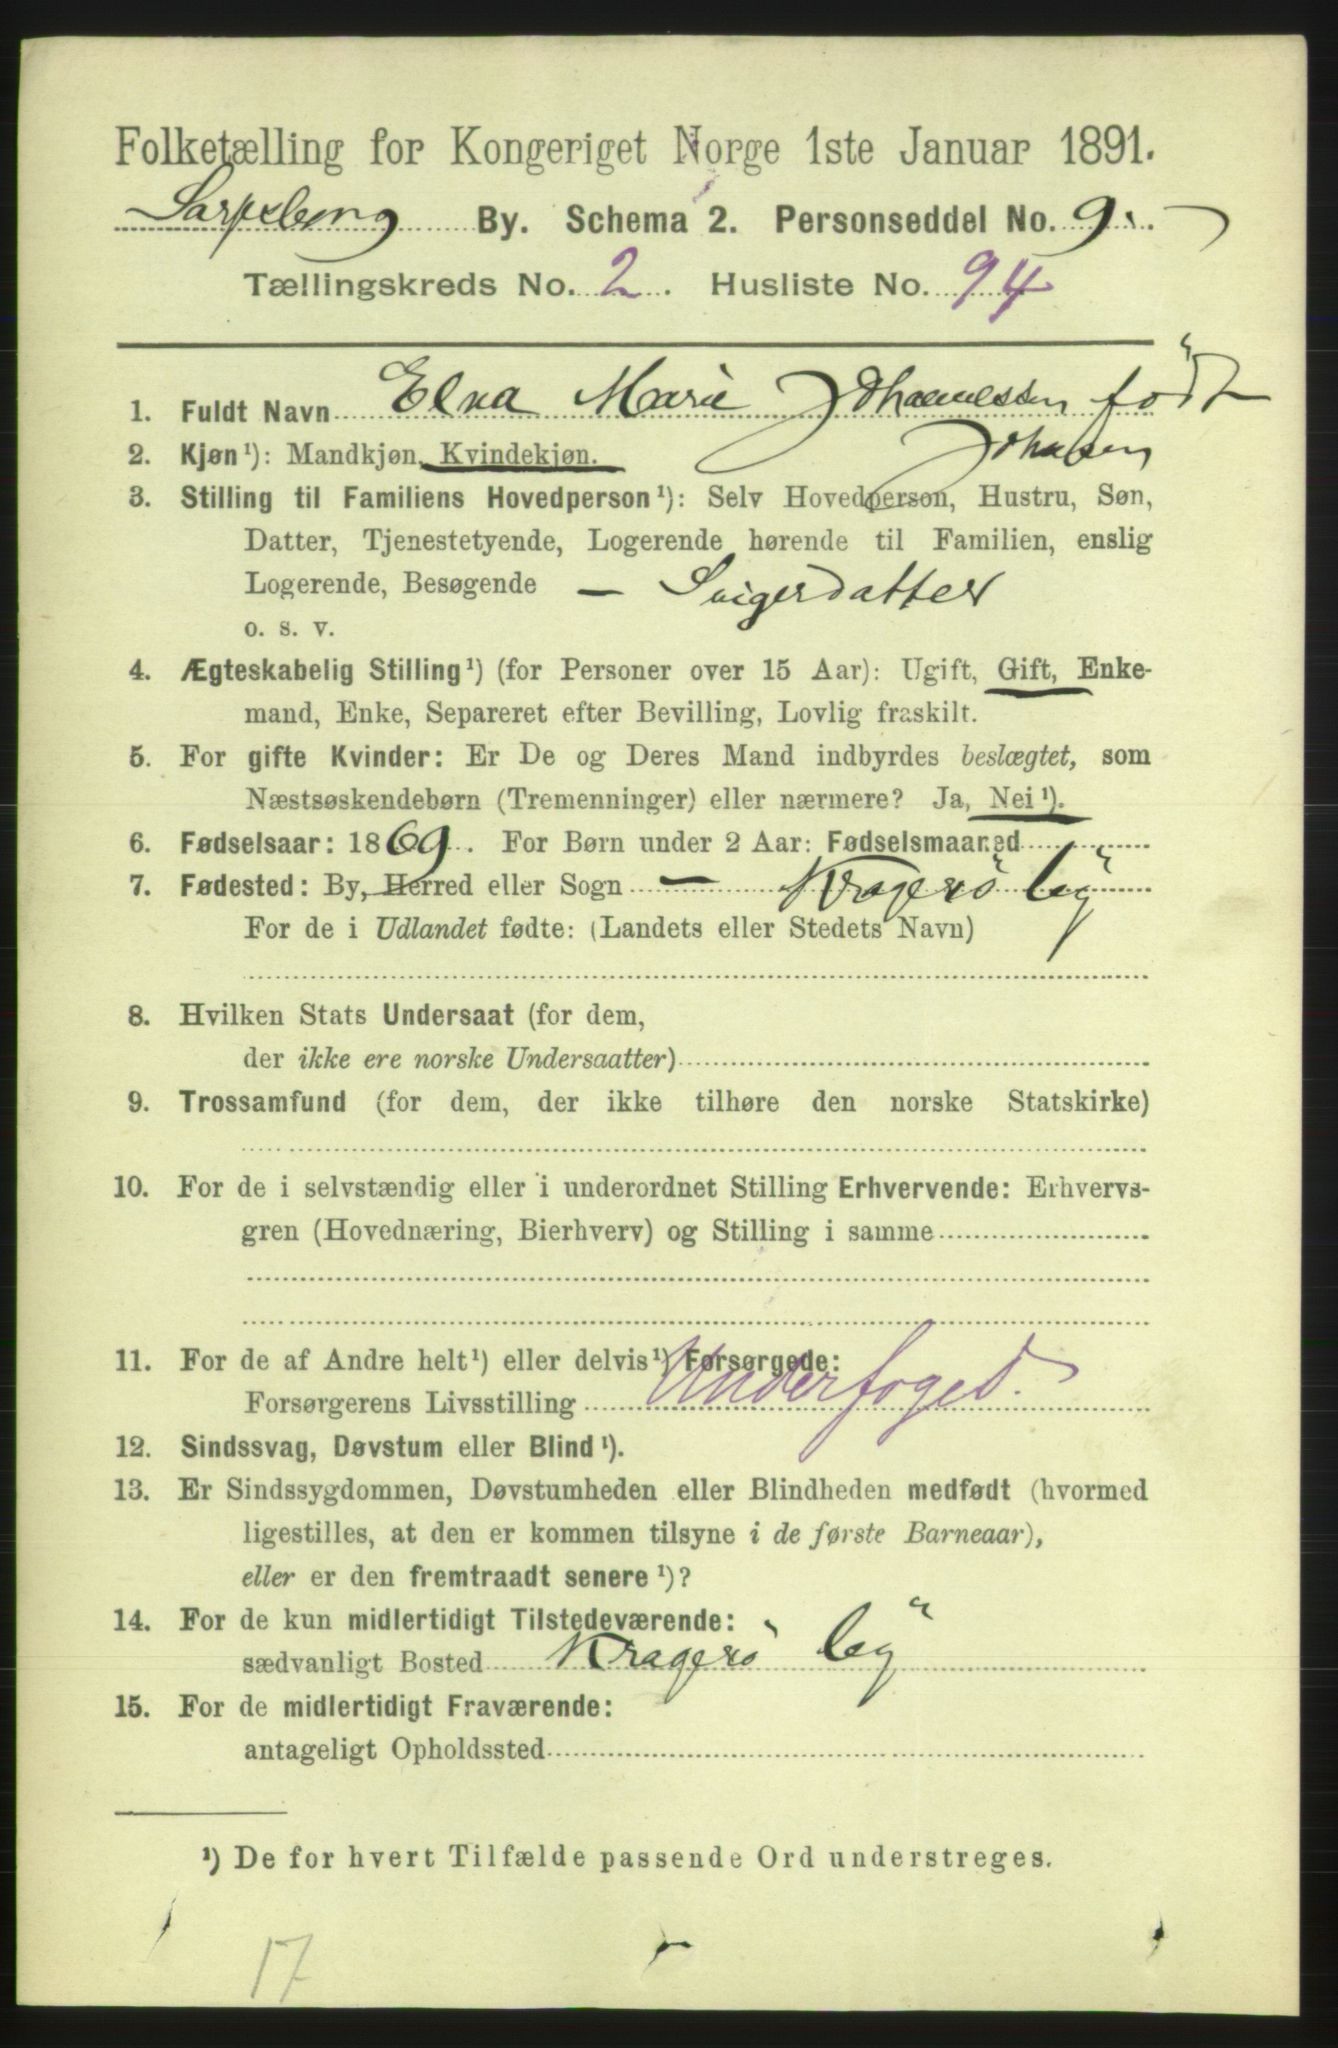 Folketælling for Kongeriget Norge 1ste Januar 1891.
Sarpsborg By. Schema 2. Personseddel No. 9.
Tællingskreds No. 2. Husliste No. 94
1. Fuldt Navn Elna Marie Johannessen født
Johnsen
2. Kjøn¹): Mandkjøn, Kvindekjøn.
3. Stilling til Familiens Hovedperson¹): Selv Hovedperson, Hustru, Søn,
Datter, Tjenestetyende, Logerende hørende til Familien, enslig
Logerende, Besøgende — Svigerdatter
o. s. v.
4. Ægteskabelig Stilling¹) (for Personer over 15 Aar): Ugift, Gift, Enke-
mand, Enke, Separeret efter Bevilling, Lovlig fraskilt.
5. For gifte Kvinder: Er De og Deres Mand indbyrdes beslægtet, som
Næstsøskendebørn (Tremenninger) eller nærmere? Ja, Nei¹).
6. Fødselsaar: 1869. For Børn under 2 Aar: Fødselsmaaned
7. Fødested: By, Herred eller Sogn — Kragerö By
For de i Udlandet fødte: (Landets eller Stedets Navn)
8. Hvilken Stats Undersaat (for dem,
der ikke ere norske Undersaatter)
9. Trossamfund (for dem, der ikke tilhøre den norske Statskirke)
10. For de i selvstændig eller i underordnet Stilling Erhvervende: Erhvervs-
gren (Hovednæring, Bierhverv) og Stilling i samme
11. For de af Andre helt¹) eller delvis¹) Forsørgede:
Forsørgerens Livsstilling Underfoged.
12. Sindssvag, Døvstum eller Blind¹).
13. Er Sindssygdommen, Døvstumheden eller Blindheden medfødt (hvormed
ligestilles, at den er kommen tilsyne i de første Barneaar),
eller er den fremtraadt senere¹)?
14. For de kun midlertidigt Tilstedeværende:
sædvanligt Bosted Kragerö By
15. For de midlertidigt Fraværende:
antageligt Opholdssted
¹) De for hvert Tilfælde passende Ord understreges.
17